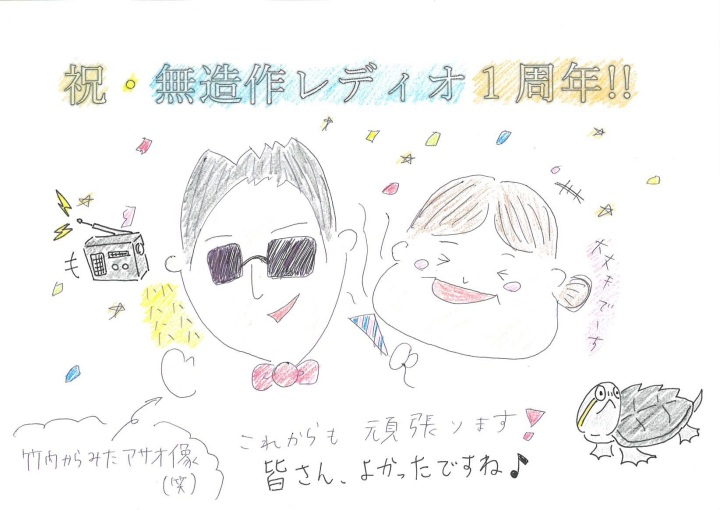 祝・無造作レディオ１周年!!
竹内からみたアサオ像
(笑)
これからも 頑張ります!
皆さん、よかったですね♪